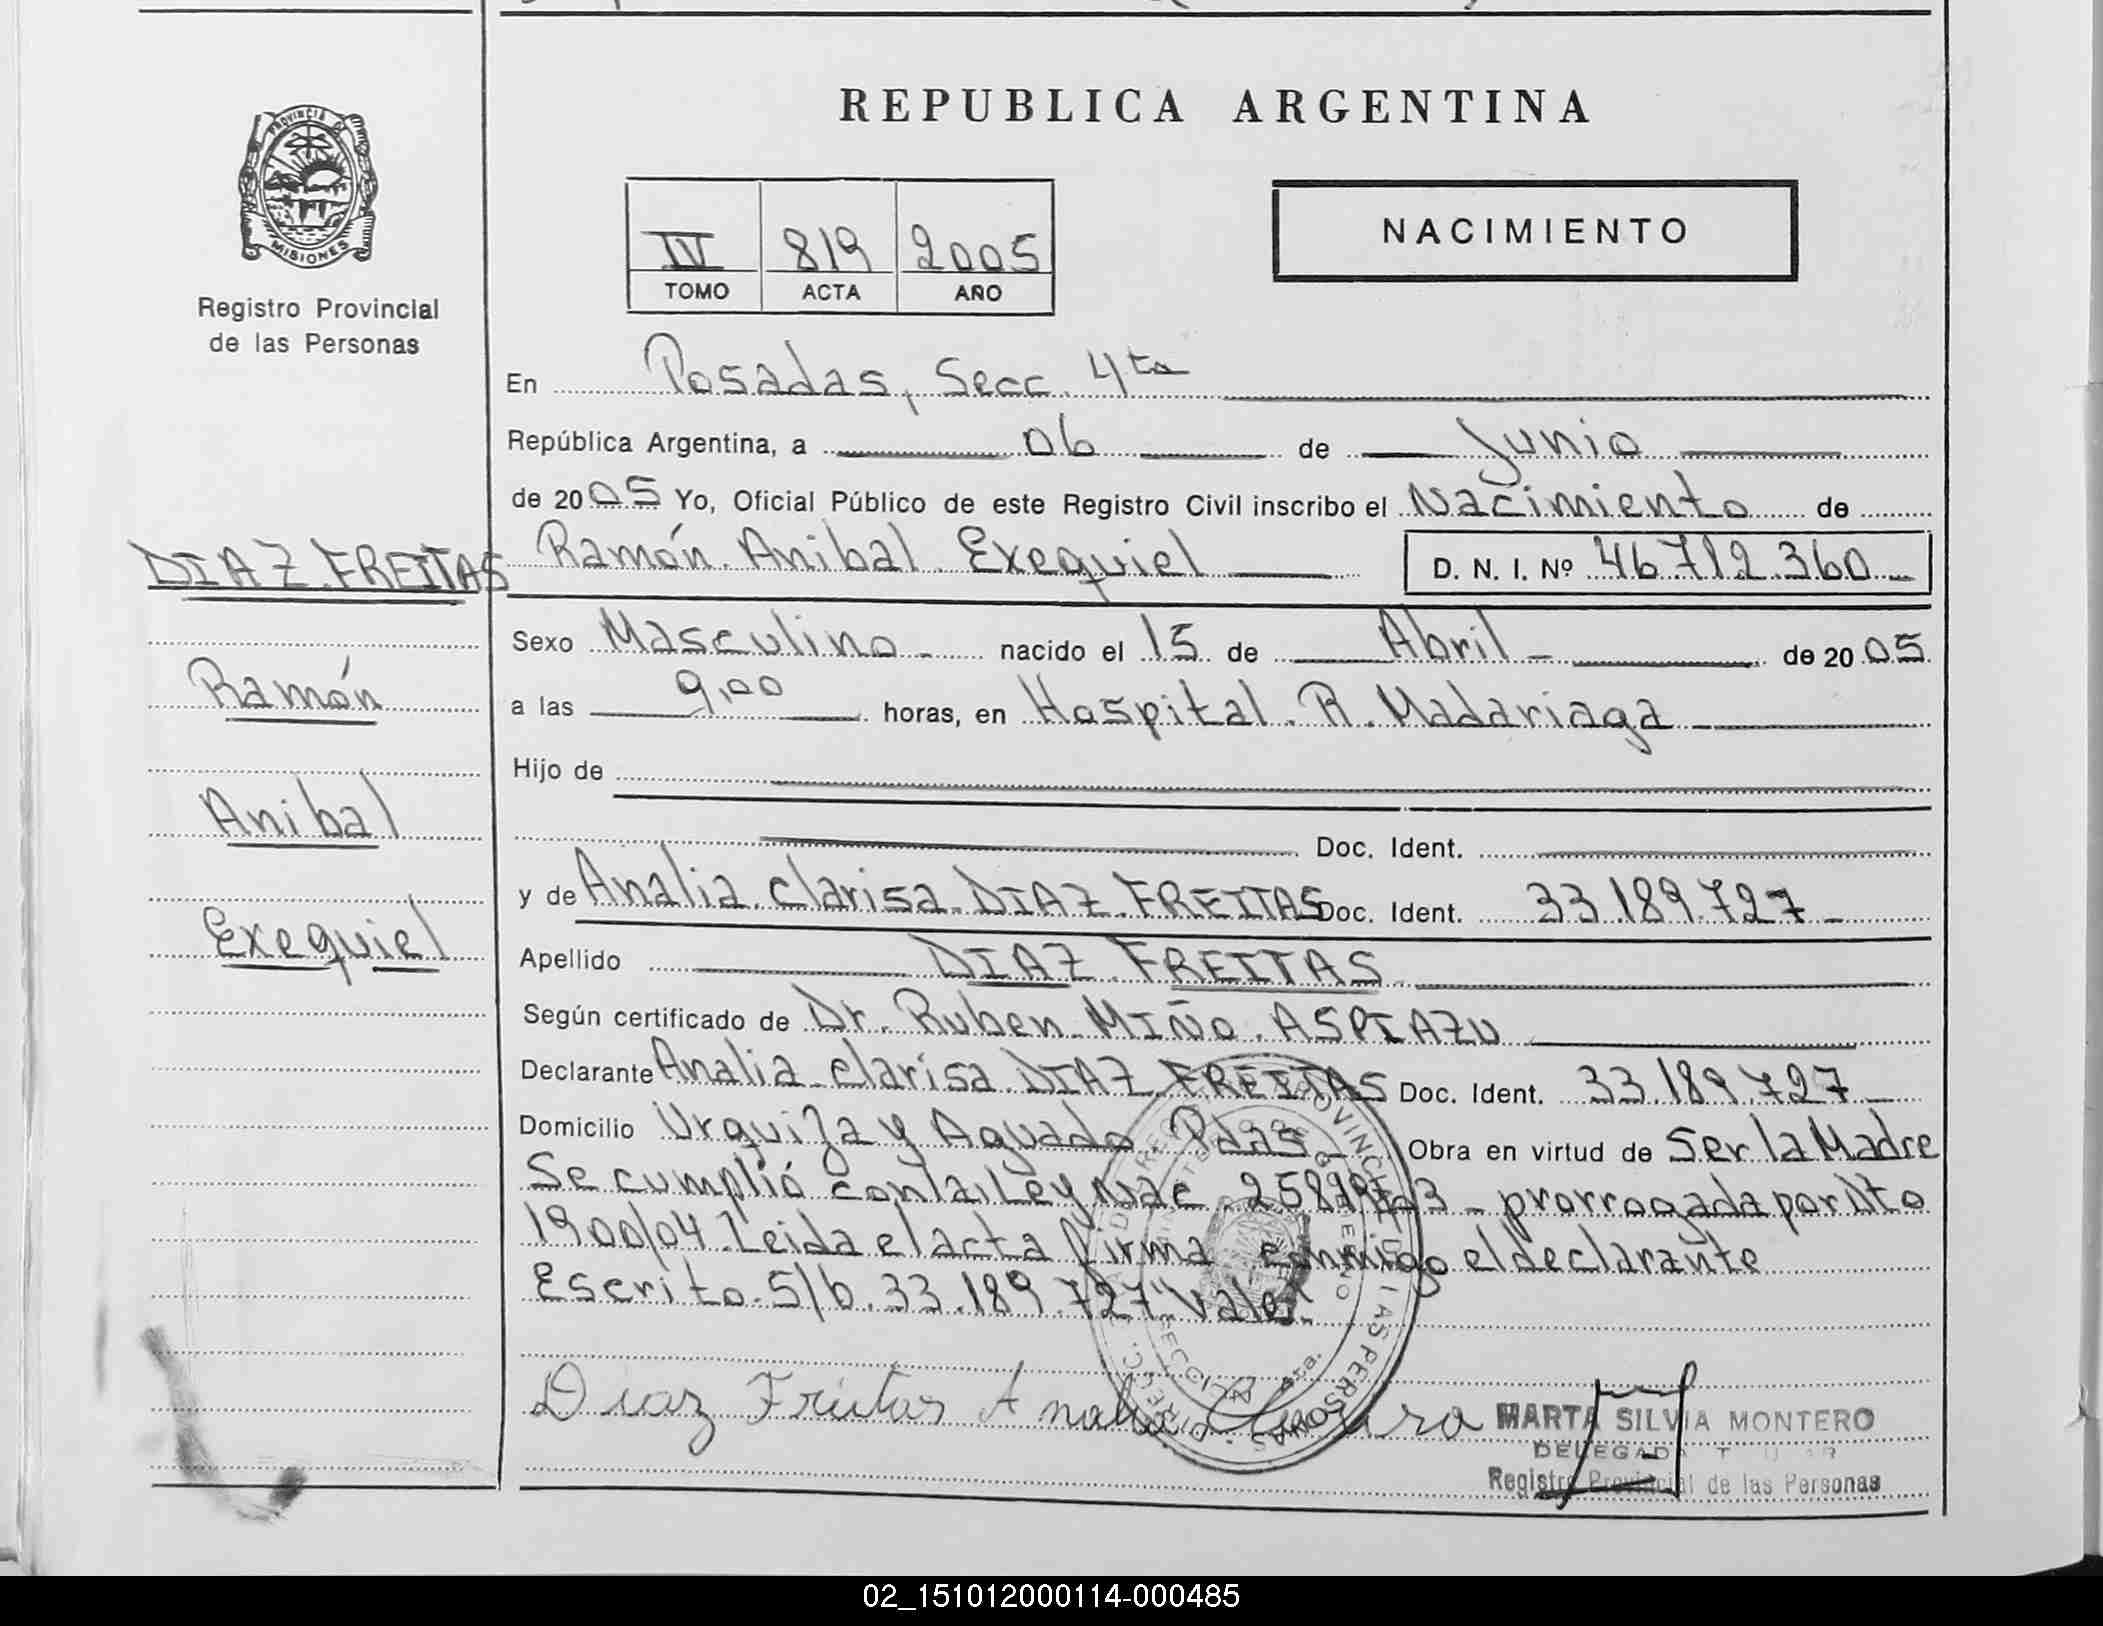 REPUBLICA ARGENTINA
PROVINCIA DE
MISIONES
Registro Provincial
de las Personas
IV 819 2005
TOMO ACTA AÑO
NACIMIENTO
En Posadas, Secc. 4ta
República Argentina, a 06 de Junio
de 2005 Yo, Oficial Público de este Registro Civil inscribo el Nacimiento de
DIAZ FREITAS
Ramón Anibal Exequiel D. N. I. Nº 46.712.360
Sexo Masculino nacido el 15 de Abril de 2005
Ramón
a las 9,00 horas, en Hospital R. Madariaga
Hijo de
Anibal
Doc. Ident.
y de Analia Clarisa DIAZ FREITAS Doc. Ident. 33.189.727
Exequiel
Apellido DIAZ FREITAS
Según certificado de Dr. Ruben MIÑO ASPIAZU
Declarante Analia Clarisa DIAZ FREITAS Doc. Ident. 33.189.727
Domicilio Urquiza y Aguado Pdas Obra en virtud de Ser la Madre
Se cumplió con la Ley Nac. prorrogada por Dto
1900/04. Leida el acta firma conmigo el declarante
Escrito S/b. 33.189.727 "Vale".
Diaz Freitas Analia
MARTA SILVIA MONTERO
DELEGADA
Registro Provincial de las Personas
02_151012000114-000485